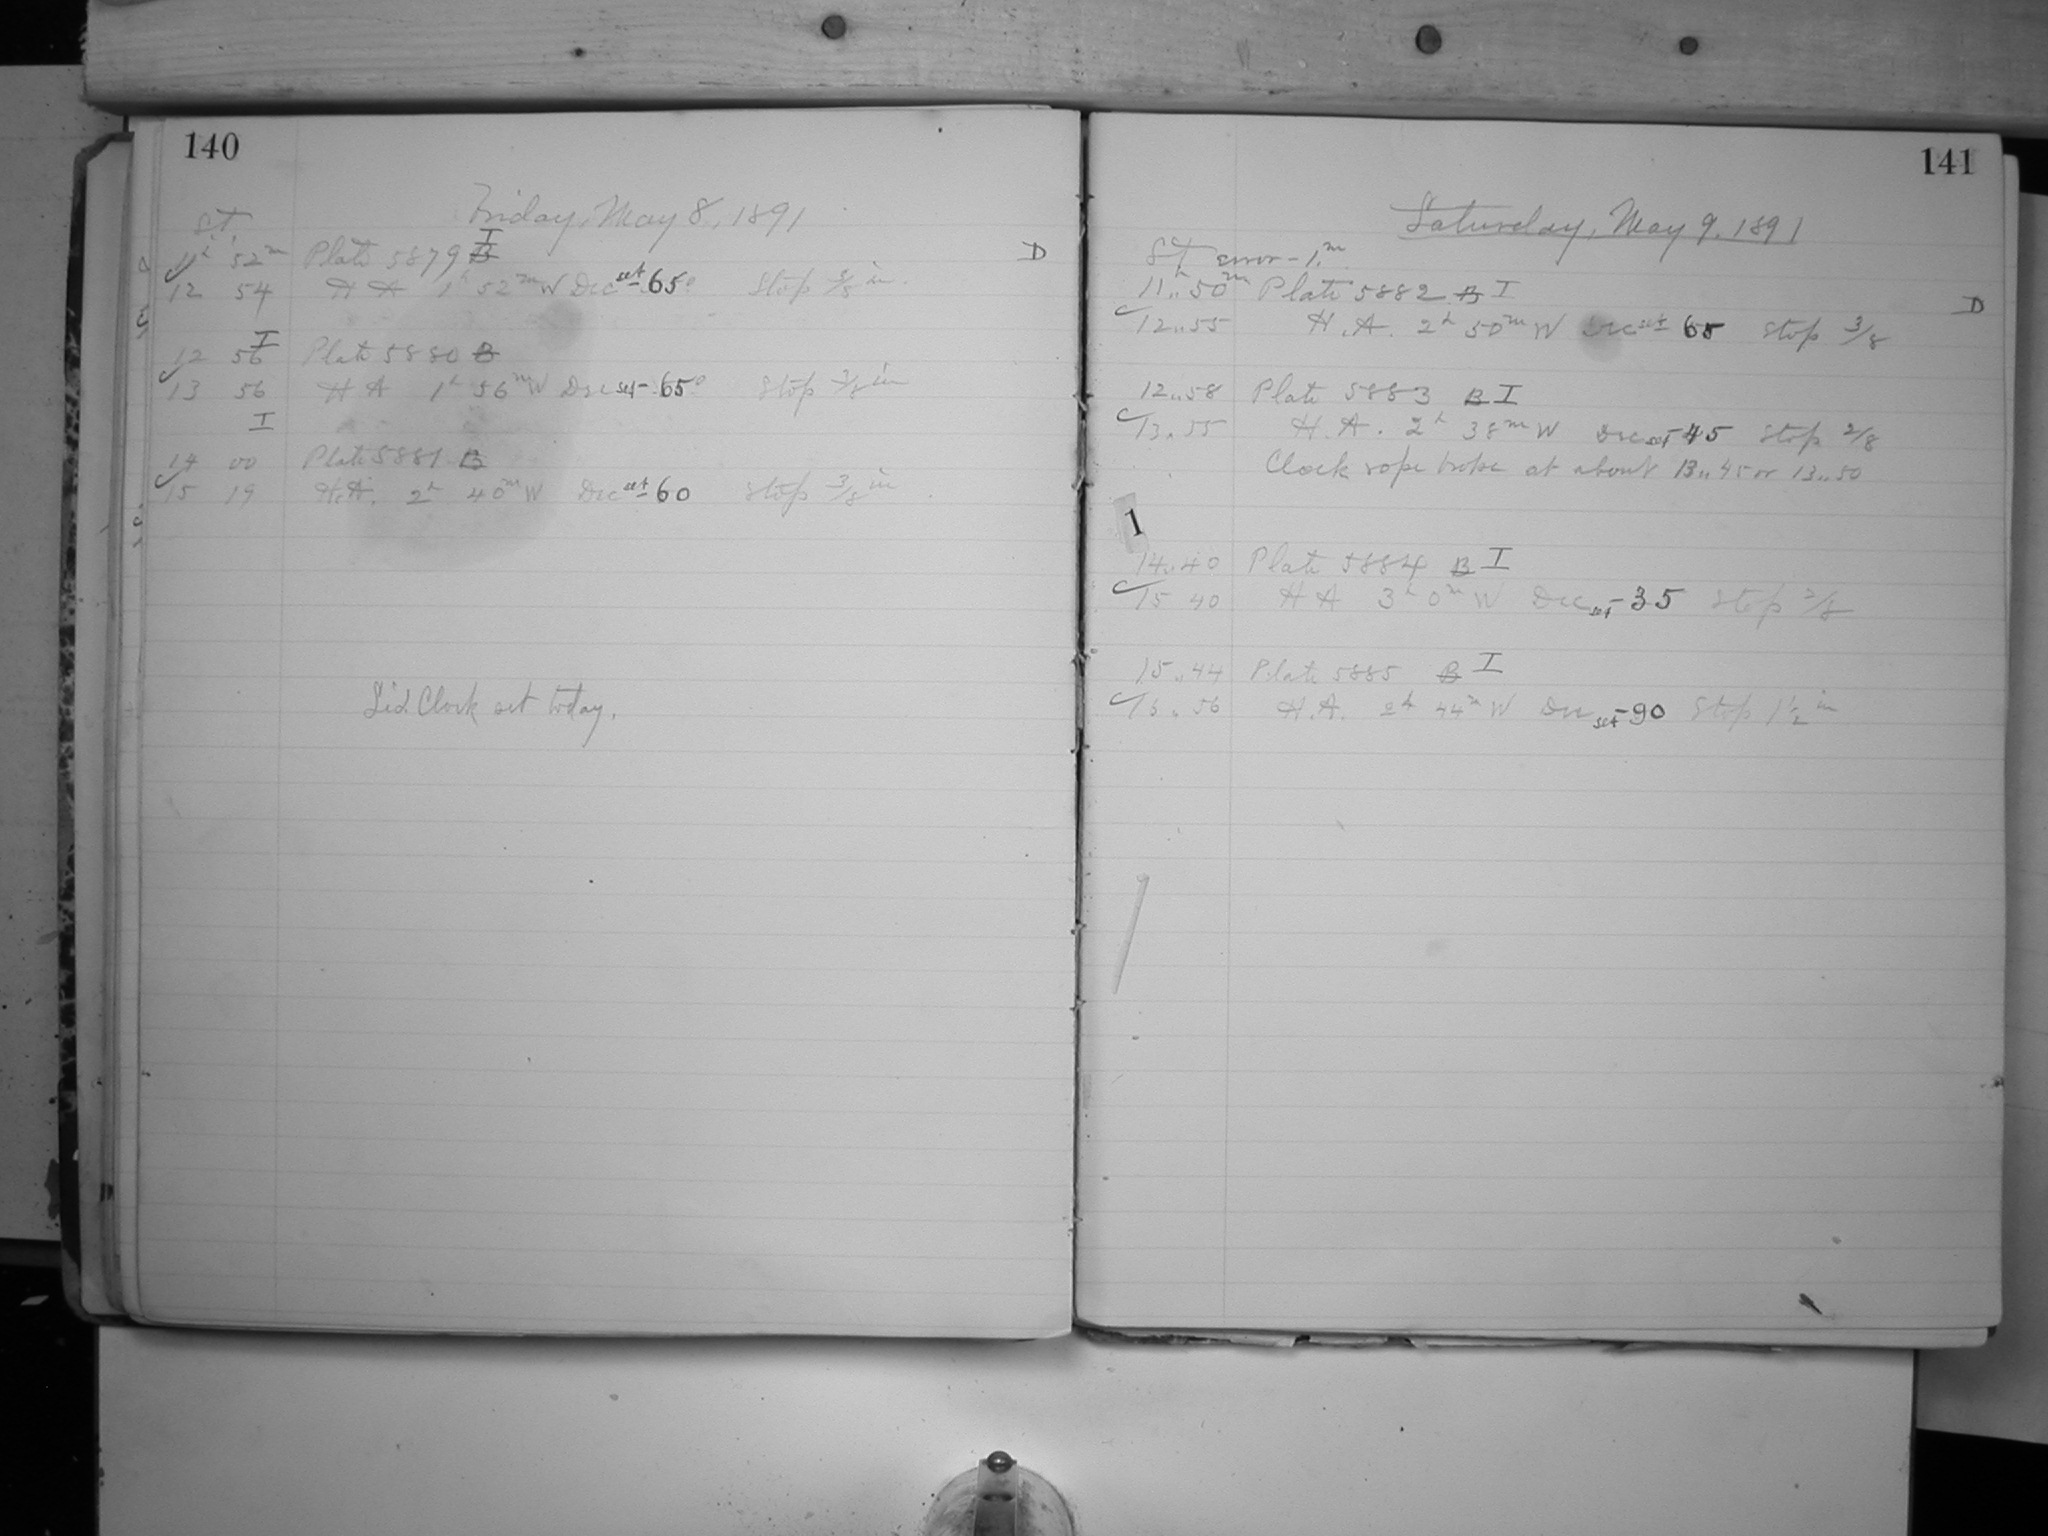 140
Friday, May 8, 1891
ST
I
11h 52m Plate 5879 B
D
12 54 HA 1h 52m W Dec set -65° Stop 3/8 in.
I
12 56 Plate 5880 B
13 56 HA 1h 56m W Dec set -65° Stop 3/8 in
I
14 00 Plate 5881 B
15 19 H.A. 2h 40m W Dec set -60 Stop 3/8 in
Sid. Clock set today.
141
Saturday, May 9, 1891
ST error -1m
11h 50m Plate 5882 B I
D
12 55 H.A. 2h 50m W Dec set -65 Stop 3/8
12 58 Plate 5883 B I
13 55 H.A. 2h 38m W Dec set -45 Stop 2/8
Clock rope broke at about 13 45 or 13 50
1
14 40 Plate 5884 B I
15 40 HA 3h 0m W Dec set -35 Stop 2/8
15 44 Plate 5885 B I
56 H.A. 2h 44m W Dec set -90 Stop 1 1/2 in